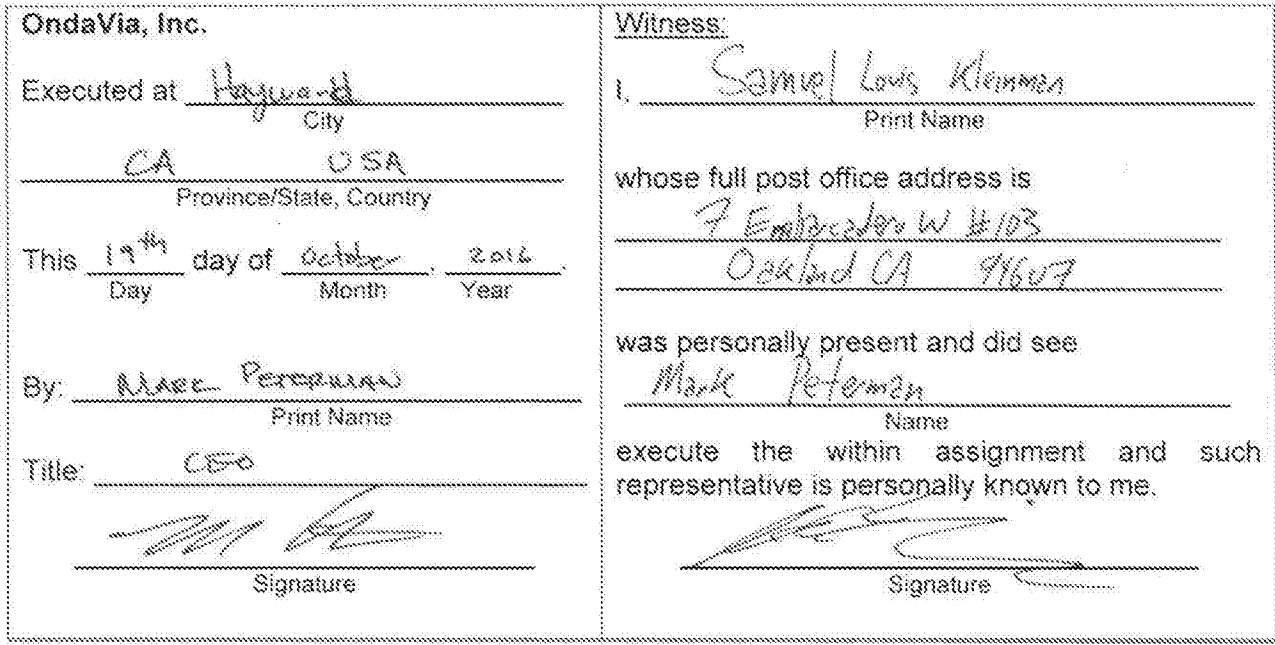 OndaVia, Inc.
Executed at Hayward
City
CA USA
Province/State, Country
This 19th day of October, 2016.
Day Month Year
By: MARK PETERMAN
Print Name
Title: CEO
Signature
Witness:
I, Samuel Louis Kleinman
Print Name
whose full post office address is
7 Embarcadero W #103
Oakland CA 94607
was personally present and did see
Mark Peterman
Name
execute the within assignment and such
representative is personally known to me.
Signature